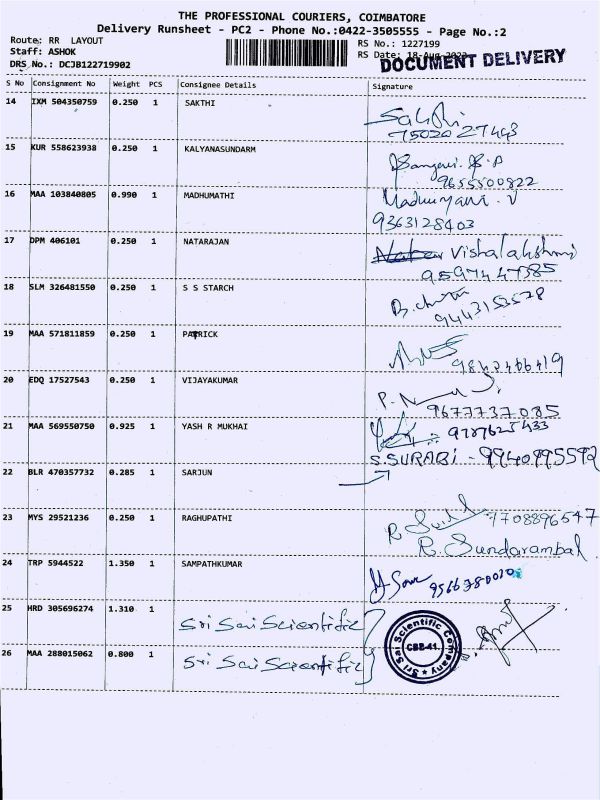 THE PROFESSIONAL COURIERS, COIMBATORE
Delivery Runsheet - PC2 - Phone No.:0422-3505555 - Page No.:2
Route: RR LAYOUT
RS No.: 1227199
Staff: ASHOK
RS Date: 18-Aug
DOCUMENT DELIVERY
DRS No.: DCJB122719902
S No Consignment No Weight PCS Consignee Details Signature
14 IXM 504350759 0.250 1 SAKTHI Sakthi
7502027443
15 KUR 558623938 0.250 1 KALYANASUNDARM
9655500822
16 MAA 103840805 0.990 1 MADHUMATHI V
9363128403
17 DPM 406101 0.250 1 NATARAJAN Vishalakshmi
9597447385
18 SLM 326481550 0.250 1 S S STARCH
9443153528
19 MAA 571811859 0.250 1 PATRICK
9842466419
20 EDQ 17527543 0.250 1 VIJAYAKUMAR
9677737085
21 MAA 569550750 0.925 1 YASH R MUKHAI 9787625433
S.SURABI - 9940995592
22 BLR 470357732 0.285 1 SARJUN
23 MYS 29521236 0.250 1 RAGHUPATHI 9708896547
R. Sundarambal
24 TRP 5944522 1.350 1 SAMPATHKUMAR
9566780020
25 HRD 305696274 1.310 1 Sri Sai Scientific
26 MAA 288015062 0.800 1 Sri Sai Scientific
Sri Sai Scientific Company
CBE-41.